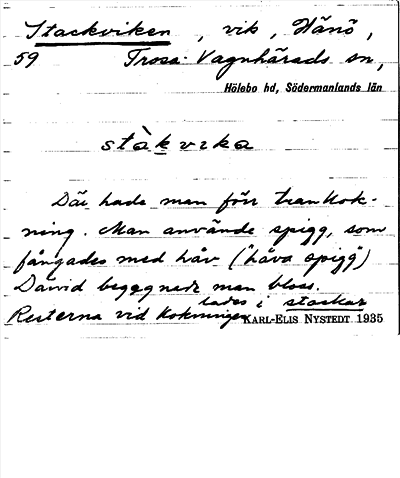 Stackviken, vik, Hånö,
59 Trosa-Vagnhärads sn,
Hölebo hd, Södermanlands län
stàkvika
Där hade man förr trankok-
ning. Man använde spigg, som
fångades med håv ("håva spigg")
Därvid begagnade man bloss.
Resterna vid kokningen lades i stackar
KARL-ELIS NYSTEDT 1935